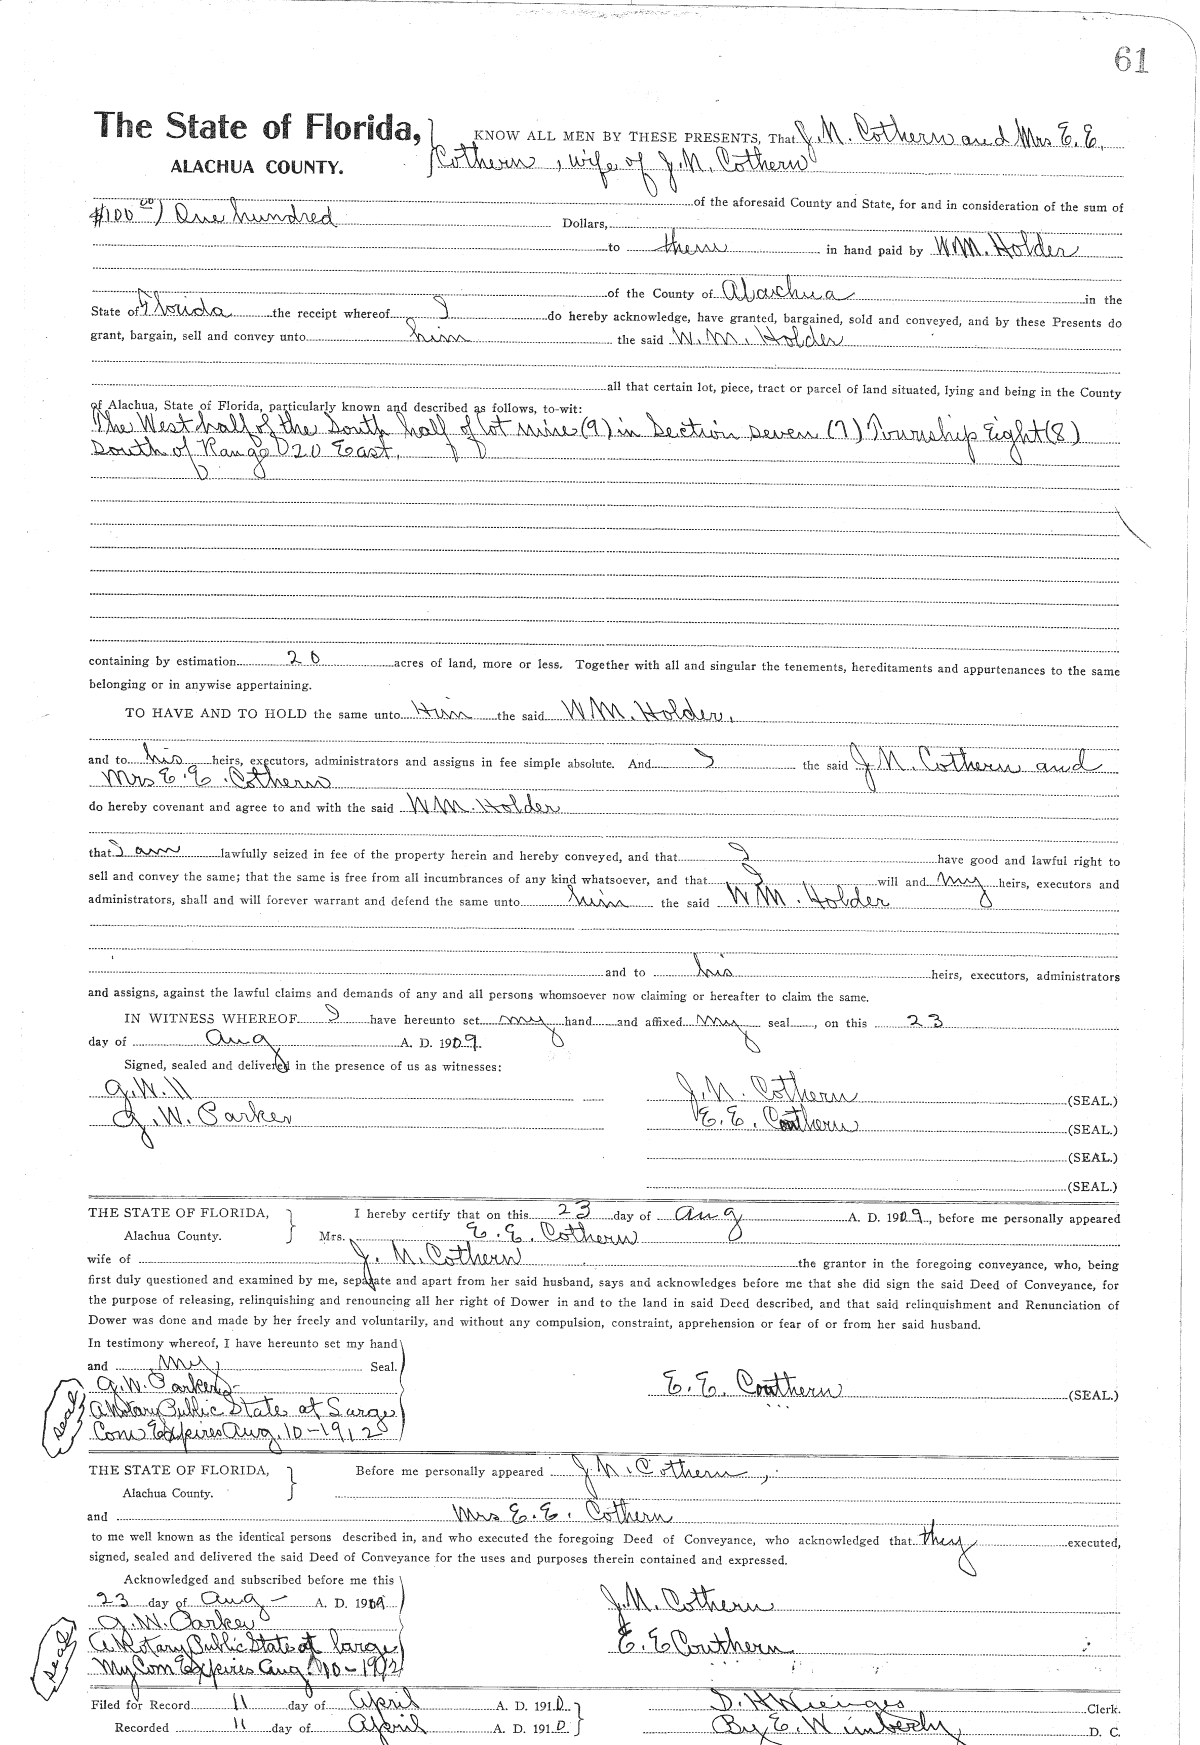 61
The State of Florida, KNOW ALL MEN BY THESE PRESENTS, That J. N. Cothern and Mrs E. E.
ALACHUA COUNTY. Cothern, wife of J. N. Cothern
of the aforesaid County and State, for and in consideration of the sum of
$100 00) One hundred Dollars,
to them in hand paid by W.M. Holder
of the County of Alachua in the
State of Florida the receipt whereof I do hereby acknowledge, have granted, bargained, sold and conveyed, and by these Presents do
grant, bargain, sell and convey unto him the said W. M. Holder
all that certain lot, piece, tract or parcel of land situated, lying and being in the County
of Alachua, State of Florida, particularly known and described as follows, to-wit:
The West half of the South half of lot nine (9) in Section seven (7) Township Eight (8)
South of Range 20 East.
containing by estimation 20 acres of land, more or less. Together with all and singular the tenements, hereditaments and appurtenances to the same
belonging or in anywise appertaining.
TO HAVE AND TO HOLD the same unto Him the said W M. Holder,
and to his heirs, executors, administrators and assigns in fee simple absolute. And I the said J. N. Cothern and
Mrs E. E. Cothern
do hereby covenant and agree to and with the said W.M. Holder
that I am lawfully seized in fee of the property herein and hereby conveyed, and that I have good and lawful right to
sell and convey the same; that the same is free from all incumbrances of any kind whatsoever, and that I will and my heirs, executors and
administrators, shall and will forever warrant and defend the same unto him the said W M. Holder
and to his heirs, executors, administrators
and assigns, against the lawful claims and demands of any and all persons whomsoever now claiming or hereafter to claim the same.
IN WITNESS WHEREOF I have hereunto set my hand and affixed my seal, on this 23
day of Aug A. D. 1909.
Signed, sealed and delivered in the presence of us as witnesses:
J. N. Cothern (SEAL.)
G. W. Parker E. E. Cothern (SEAL.)
(SEAL.)
(SEAL.)
THE STATE OF FLORIDA, I hereby certify that on this 23 day of Aug A. D. 1909, before me personally appeared
Alachua County. Mrs. E. E. Cothern
wife of J. N. Cothern the grantor in the foregoing conveyance, who, being
first duly questioned and examined by me, separate and apart from her said husband, says and acknowledges before me that she did sign the said Deed of Conveyance, for
the purpose of releasing, relinquishing and renouncing all her right of Dower in and to the land in said Deed described, and that said relinquishment and Renunciation of
Dower was done and made by her freely and voluntarily, and without any compulsion, constraint, apprehension or fear of or from her said husband.
In testimony whereof, I have hereunto set my hand
and my Seal.
G. W. Parker E. E. Couthern (SEAL.)
Seal A Notary Public State at Large
Com Expires Aug. 10-1912
THE STATE OF FLORIDA, Before me personally appeared J. N. Cothern,
Alachua County.
and Mrs E. E. Cothern
to me well known as the identical persons described in, and who executed the foregoing Deed of Conveyance, who acknowledged that they executed,
signed, sealed and delivered the said Deed of Conveyance for the uses and purposes therein contained and expressed.
Acknowledged and subscribed before me this
23 day of Aug - A. D. 1909 J. N. Cothern
G. W. Parker
Seal A Notary Public State at large E. E Couthern
My Com Expires Aug. 10-1912
Filed for Record 11 day of April A. D. 1910 D. H Wienges Clerk.
Recorded 11 day of April A. D. 1910 By E. Wimberly D. C.